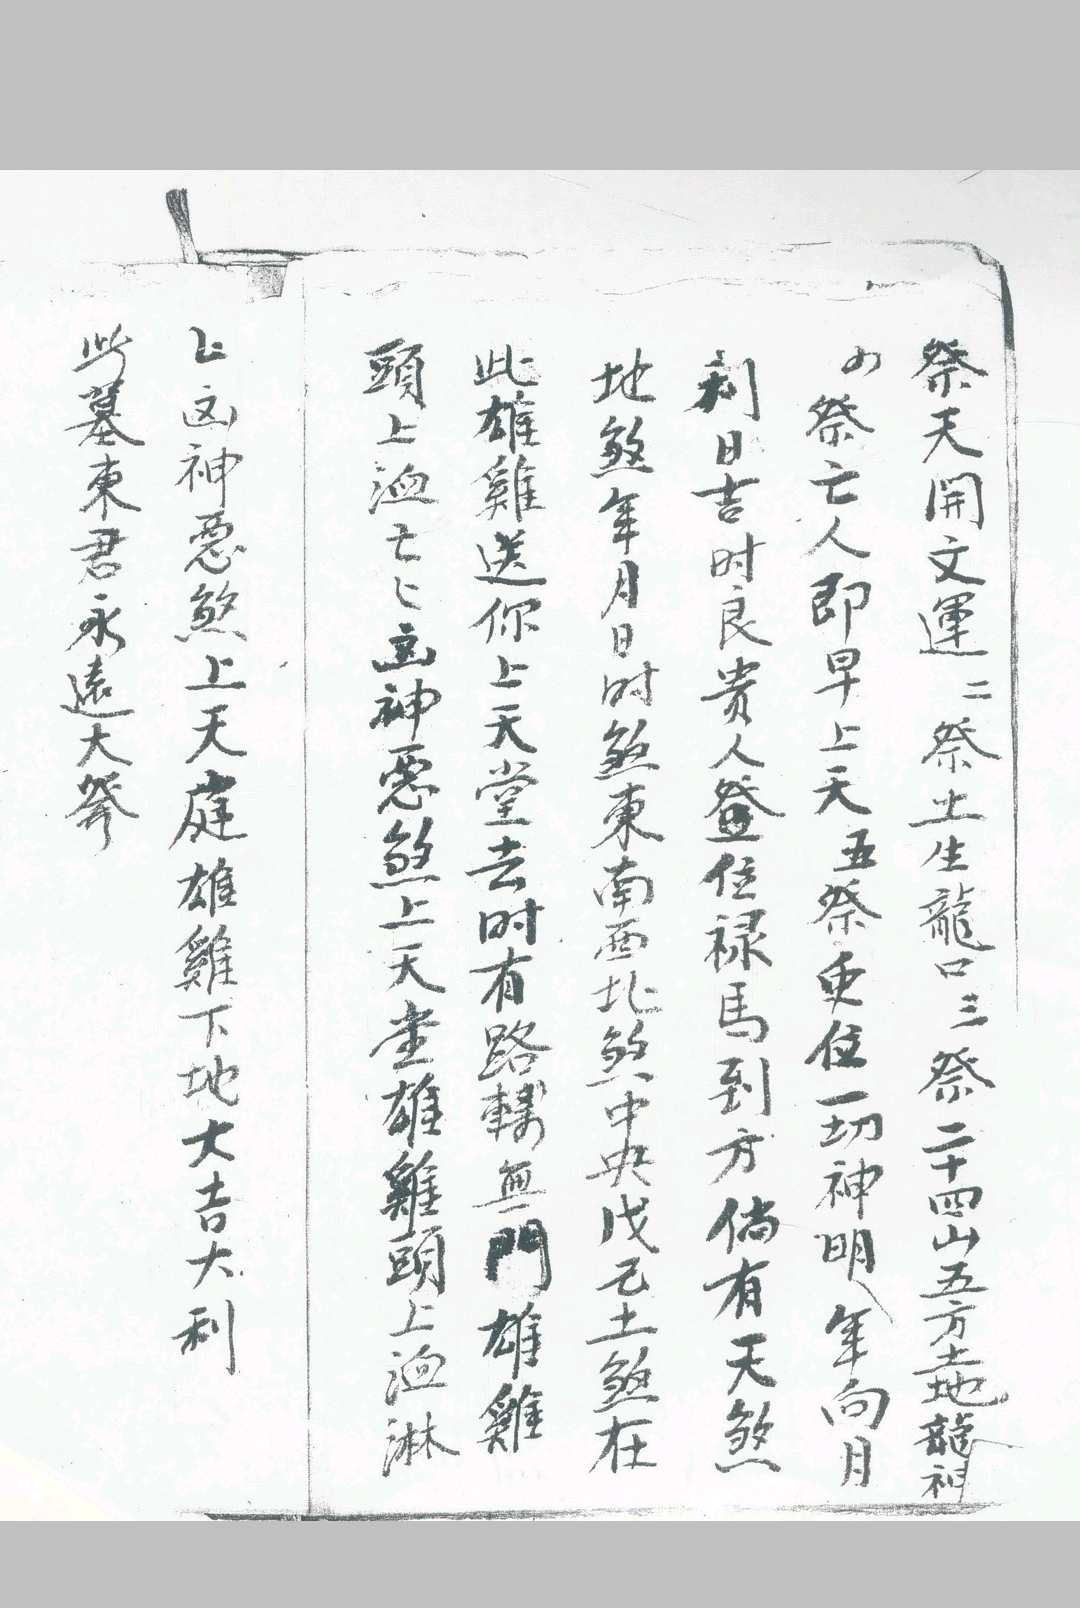 祭天開文運二祭土生龍口三祭二十四山五方土地龍神
四祭亡人即早上天五祭更住一切神明年向月
利日吉时良贵人登位禄馬到方倘有天煞
地煞年月日时煞東南西北煞中央戊己土煞在
此雄雞送你上天堂去时有路轉無門雄雞
頭上洫七七凶神惡煞上天堂雄雞頭上洫淋
上凶神惡煞上天庭雄雞下地大吉大利
此墓東君永遠大發